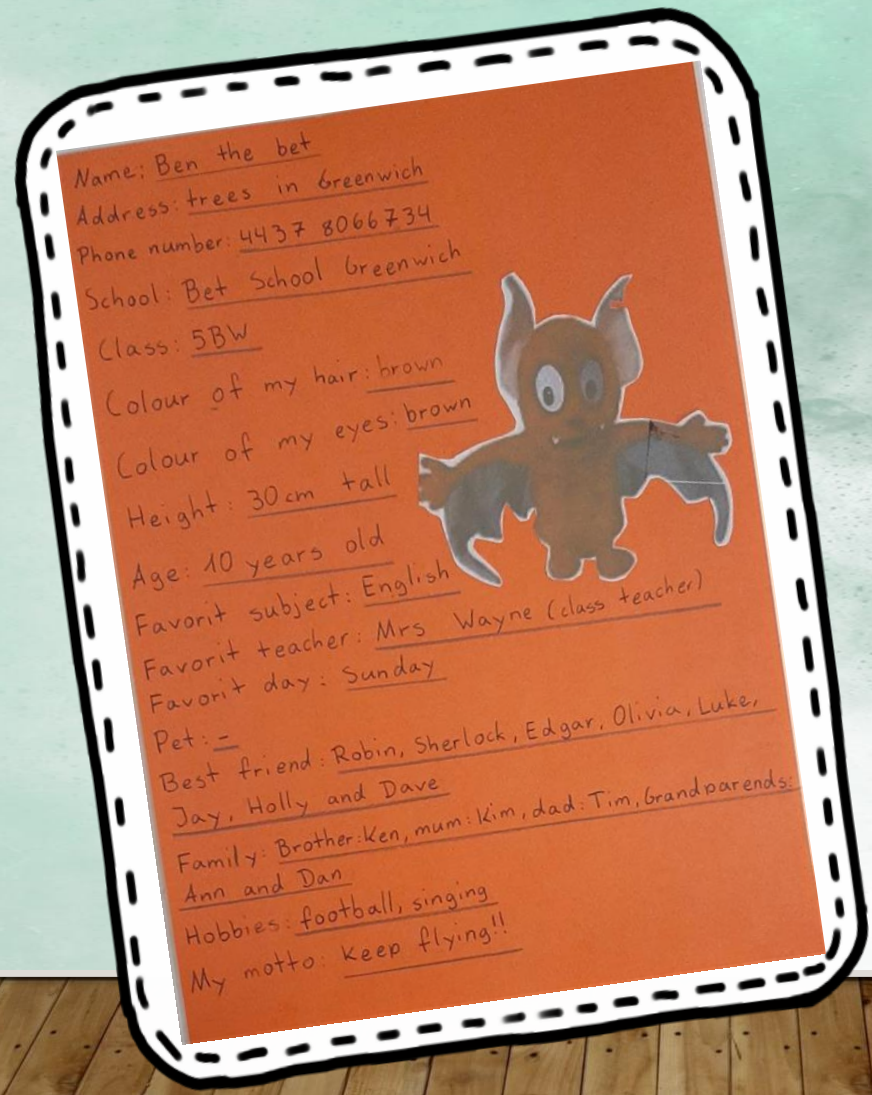 Name: Ben the bet
Address: trees in Greenwich
Phone number: 4437 8066734
School: Bet School Greenwich
Class: 5BW
Colour of my hair: brown
Colour of my eyes: brown
Height: 30cm tall
Age: 10 years old
Favorit subject: English
Favorit teacher: Mrs Wayne (class teacher)
Favorit day: Sunday
Pet: -
Best friend: Robin, Sherlock, Edgar, Olivia, Luke,
Jay, Holly and Dave
Family: Brother: Ken, mum: Kim, dad: Tim, Grandparends:
Ann and Dan
Hobbies: football, singing
My motto: keep flying!!